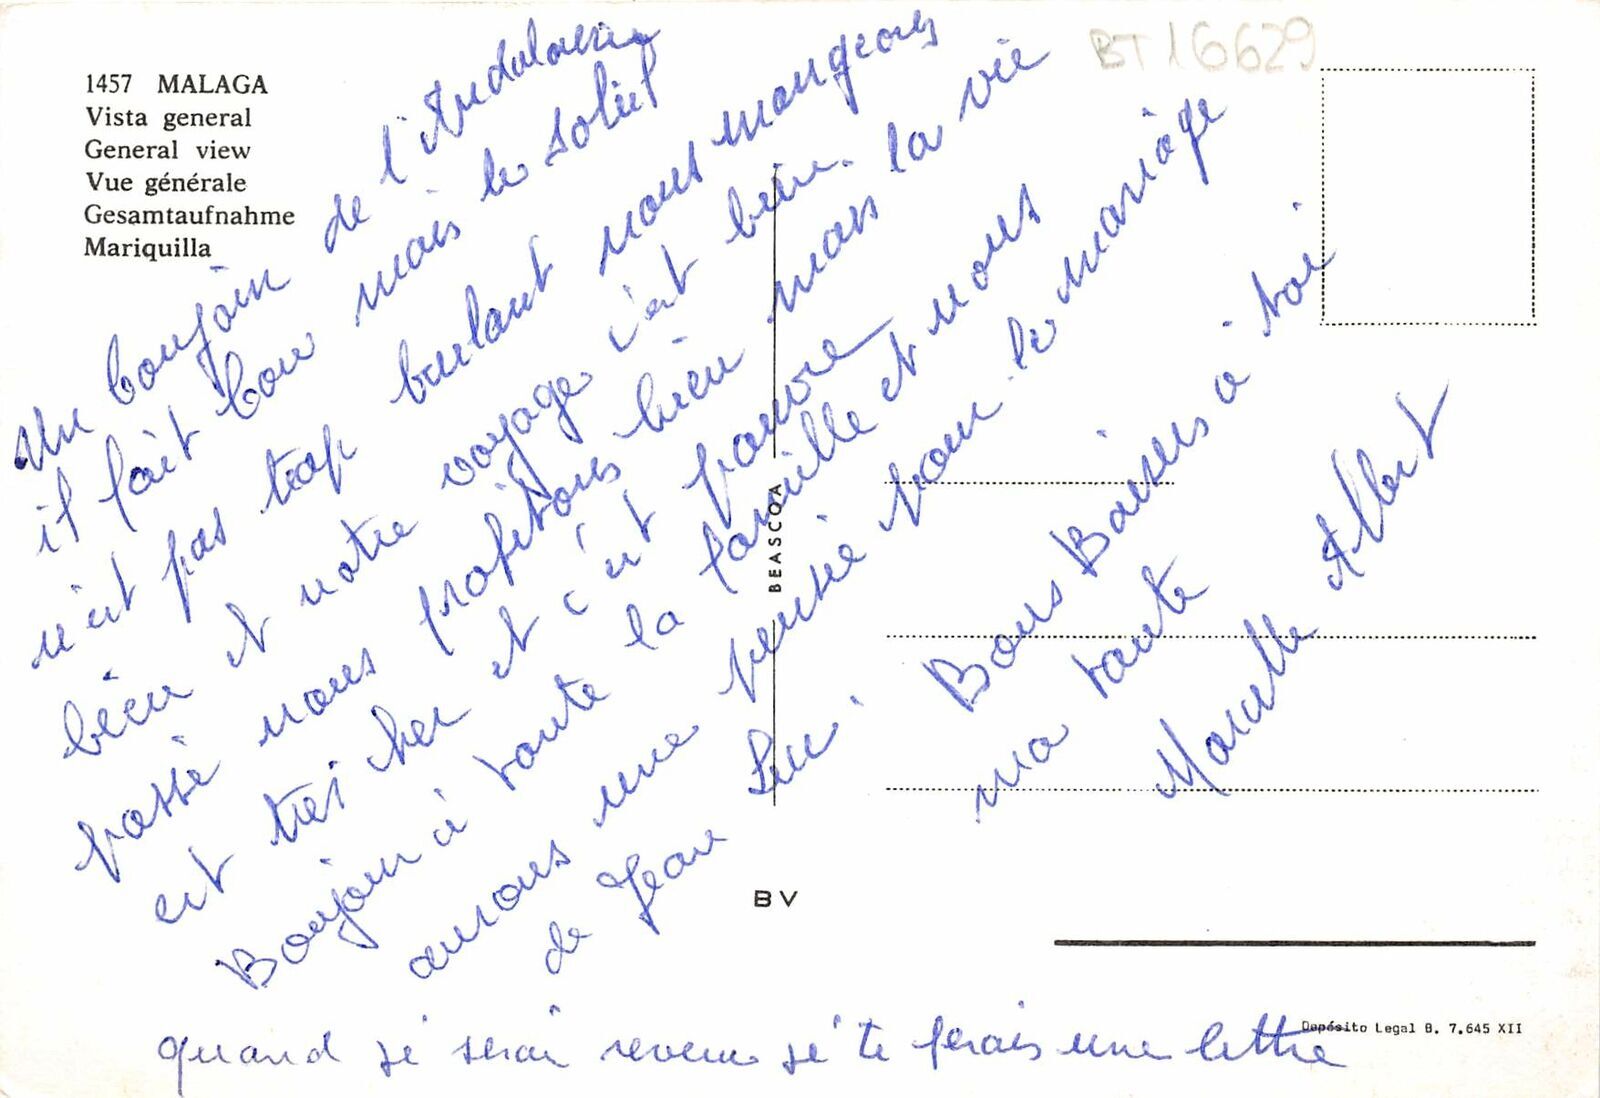 1457 MALAGA
Vista general
General view
Vue générale
Gesamtaufnahme
Mariquilla
BT 16629
Un bonjour de l'Andalousie
il fait bon mais le soleil
n'est pas trop brulant nous mangeons
bien et notre voyage c'est bien
passé nous profitons bien mais la vie
est très cher et c'est pauvre
Bonjour à toute la famille et nous
aurons une pensée pour le mariage
de Jean Luc. Bons Baisers a toi
ma tante
Marcelle Albert
quand je serai revenu je te ferais une lettre
BEASCOA
BV
Depósito Legal B. 7.645 XII